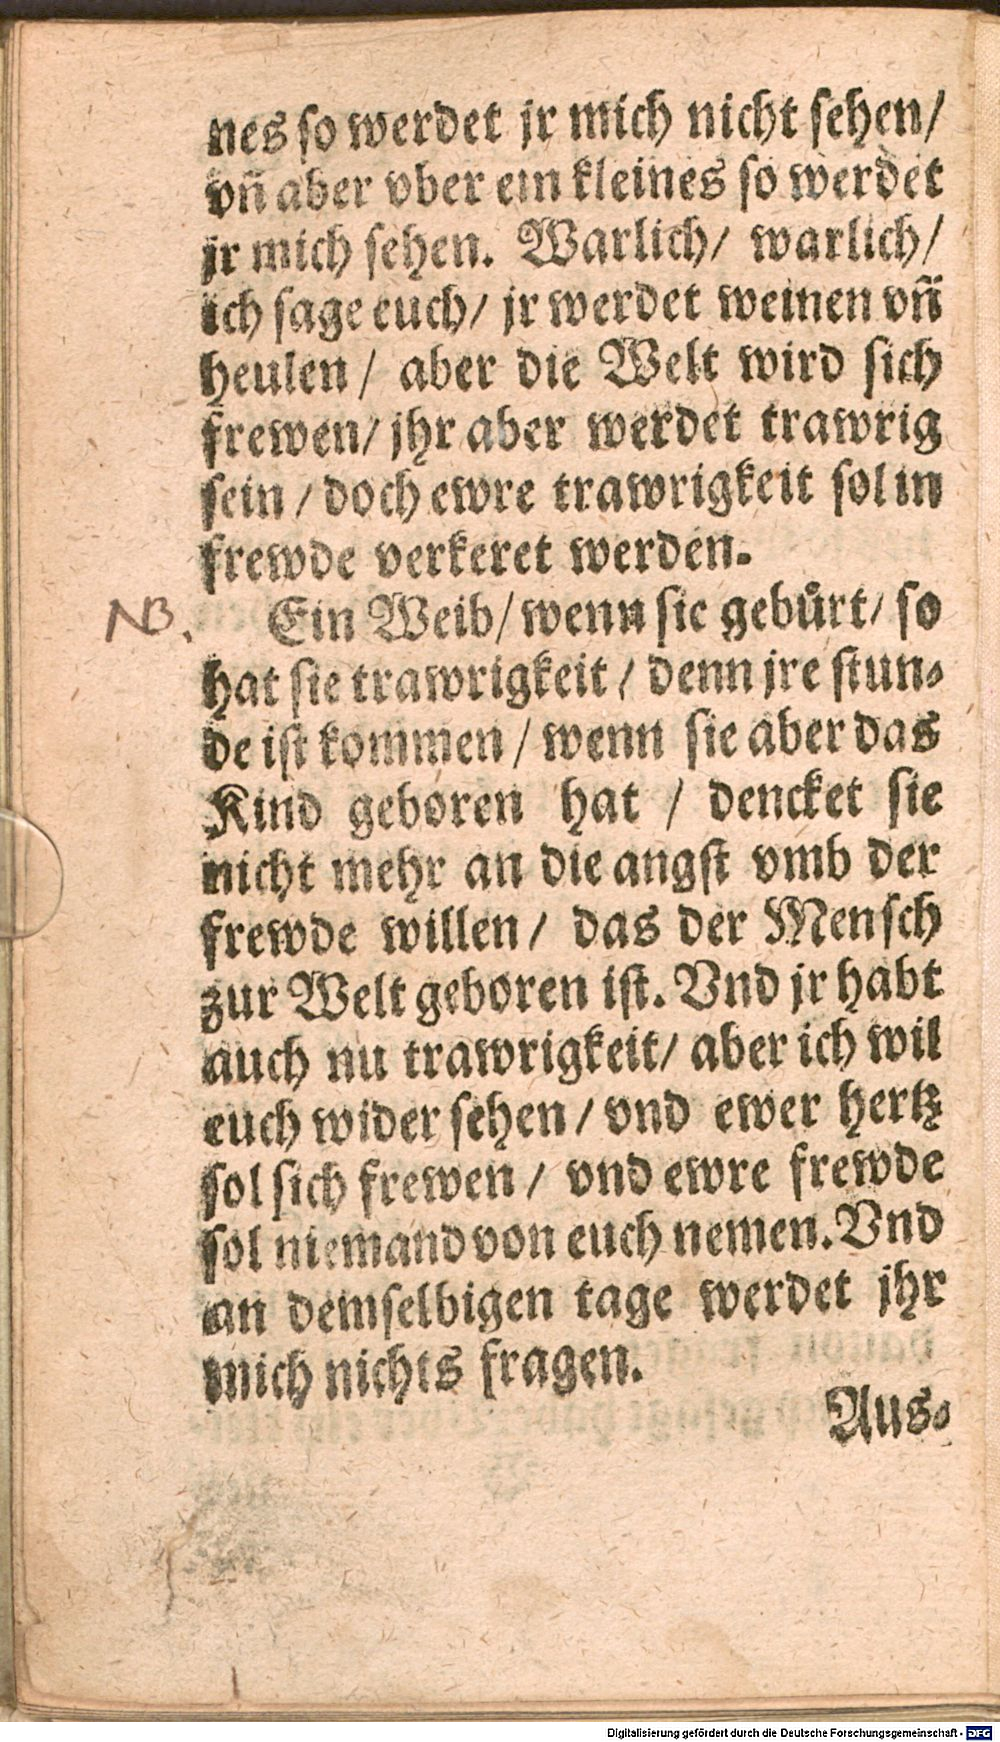 nes so werdet jr mich nicht sehen/
vñ aber vber ein kleines so werdet
jr mich sehen. Warlich/ warlich/
ich sage euch/ jr werdet weinen vñ
heulen / aber die Welt wird sich
frewen/ jhr aber werdet trawrig
sein / doch ewre trawrigkeit sol in
frewde verkeret werden.
NB.
Ein Weib/ wenn sie gebůrt/ so
hat sie trawrigkeit / denn jre stun-
de ist kommen / wenn sie aber das
Kind geboren hat / dencket sie
nicht mehr an die angst vmb der
frewde willen / das der Mensch
zur Welt geboren ist. Vnd jr habt
auch nu trawrigkeit/ aber ich wil
euch wider sehen / vnd ewer hertz
sol sich frewen / vnd ewre frewde
sol niemand von euch nemen. Vnd
an demselbigen tage werdet jhr
mich nichts fragen.
Aus-
Digitalisierung gefördert durch die Deutsche Forschungsgemeinschaft - DFG